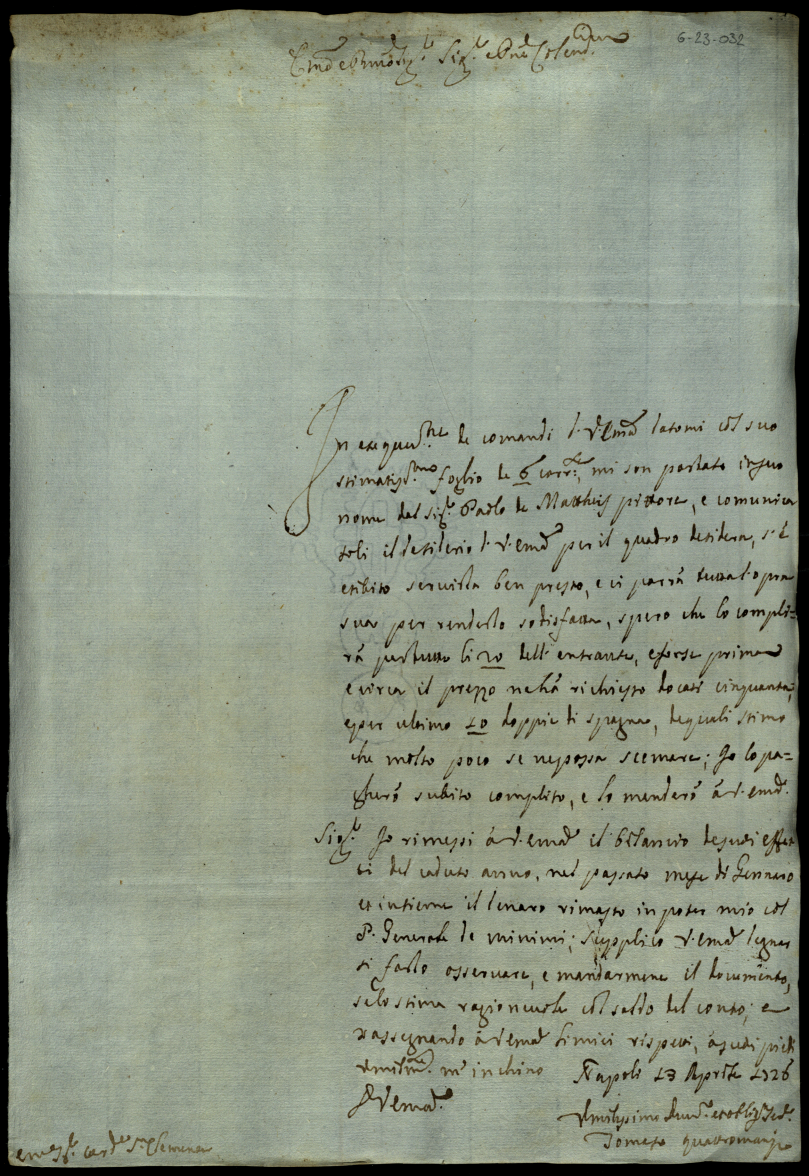 6-23-032
Em̃o e Rmo Sig.re Sig.re e Pñe Colend.mo
In esequu.ne de comandi di V. Em.a datomi col suo
stimatiss.mo foglio de 6 corr.te, mi son portato in suo
nome dal Sig.r Paolo de Mattheis pittore, e comunica
toli il desiderio di V. Em.a per il quadro desidera, s'è
esibito servirla ben presto, e ci porrà tutta l'opra
sua per renderlo sodisfatta, spero che lo compli-
rà per tutto li 20 dell'entrante, e forse prima
e circa il prezzo ne hà richiesto docati cinquanta,
e per ultimo 10 doppie di spagna, de quali stimo
che molto poco se ne possa scemare; Io lo pa=
gherò subito complito, e lo manderò à V. Em.a
Sig.re Io rimessi à V. Em.a il bilancio de suoi effet
ti del caduto anno, nel passato mese di Gennaro
et insieme il denaro rimasto in poter mio col
P. Generale de minimi; supplico V. Em.a degnar
si farlo osservare, e mandarmene il documento,
se lo stima ragionevole col saldo del conto; e
rassegnando à V. Em.a li miei rispetti, à suoi piedi
umilm.te m'inchino
Napoli 13 Aprile 1726
D V. Em.a
Umilissimo Devot.o et oblig.o Ser.
Tomaso quattromani
Em.o Sig.r Card.e S. Clemente